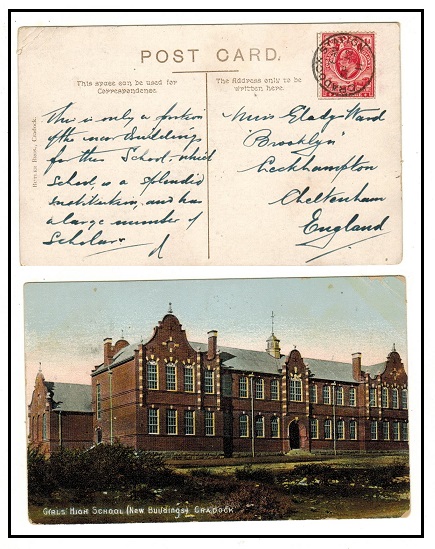 POST CARD.
This space can be used for
Correspondence.
The Address only to be
written here.
This is only a portion
of the new Buildings
for this School, which
School, is a splendid
Institution, and has
a large number of
Scholars
Miss Gladys Ward
"Brooklyn"
Leckhampton
Cheltenham
England
Bros., Cradock.
CRADOCK STATION
GIRLS HIGH SCHOOL (NEW BUILDINGS) CRADOCK